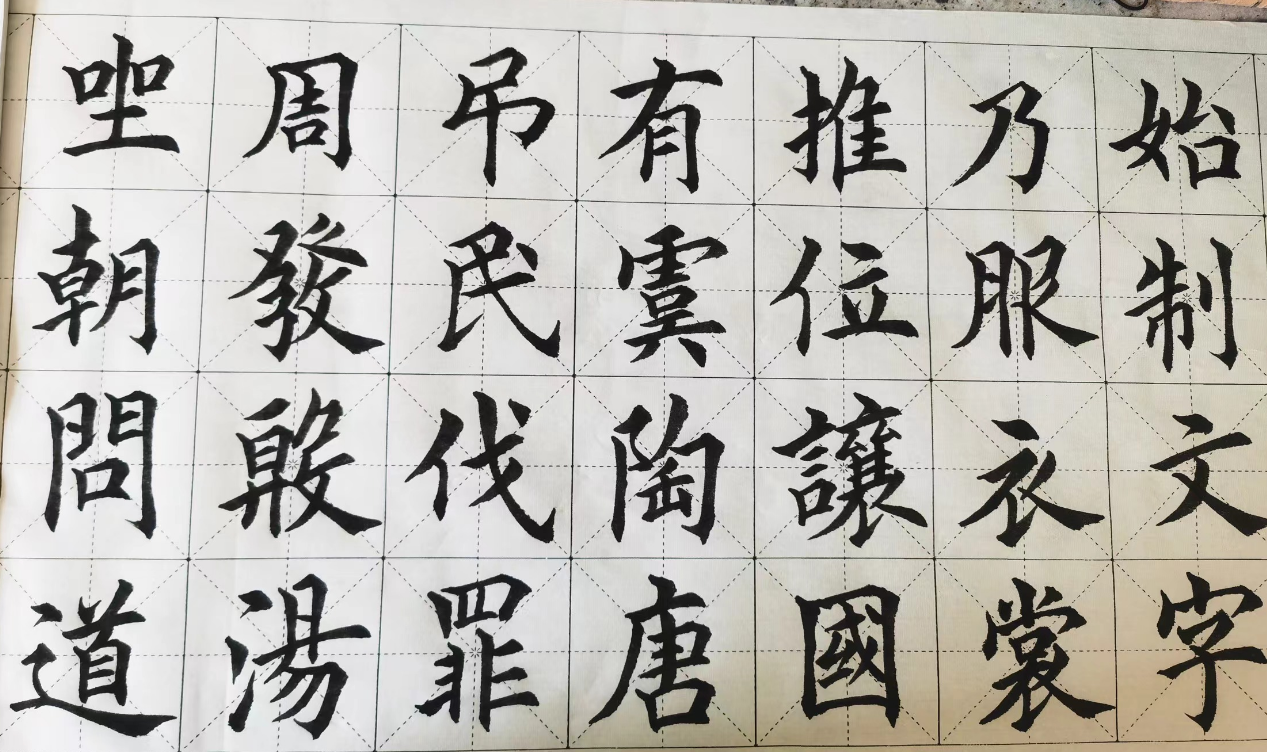 始制文字
乃服衣裳
推位讓國
有虞陶唐
吊民伐罪
周發殷湯
坐朝問道